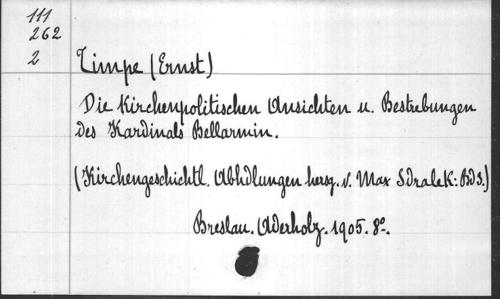 111
262
2
Timpe (Ernst)
Die kirchenpolitischen Ansichten u. Bestrebungen
des Kardinals Bellarmin.
(Kirchengeschichtl. Abhdlungen hersg. v. Max Sdralek: Bd 3.)
Breslau. Aderholz. 1905. 8°.